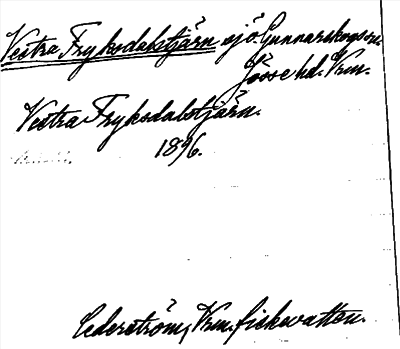 Vestra Fryksdalstjärn sjö. Gunnarskogs sn.
Jösse hd. Vrm.
Vestra Fryksdalstjärn.
1896.
Cederström, Vrm. fiskevatten.